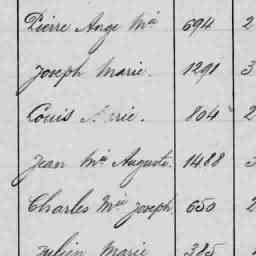 Pierre Ange Mie 694 2
Joseph Marie. 1291 3
Louis Marie. 804 2
Jean Mie Auguste. 1488 3
Charles Mie Joseph. 650 2
Julien Marie 385